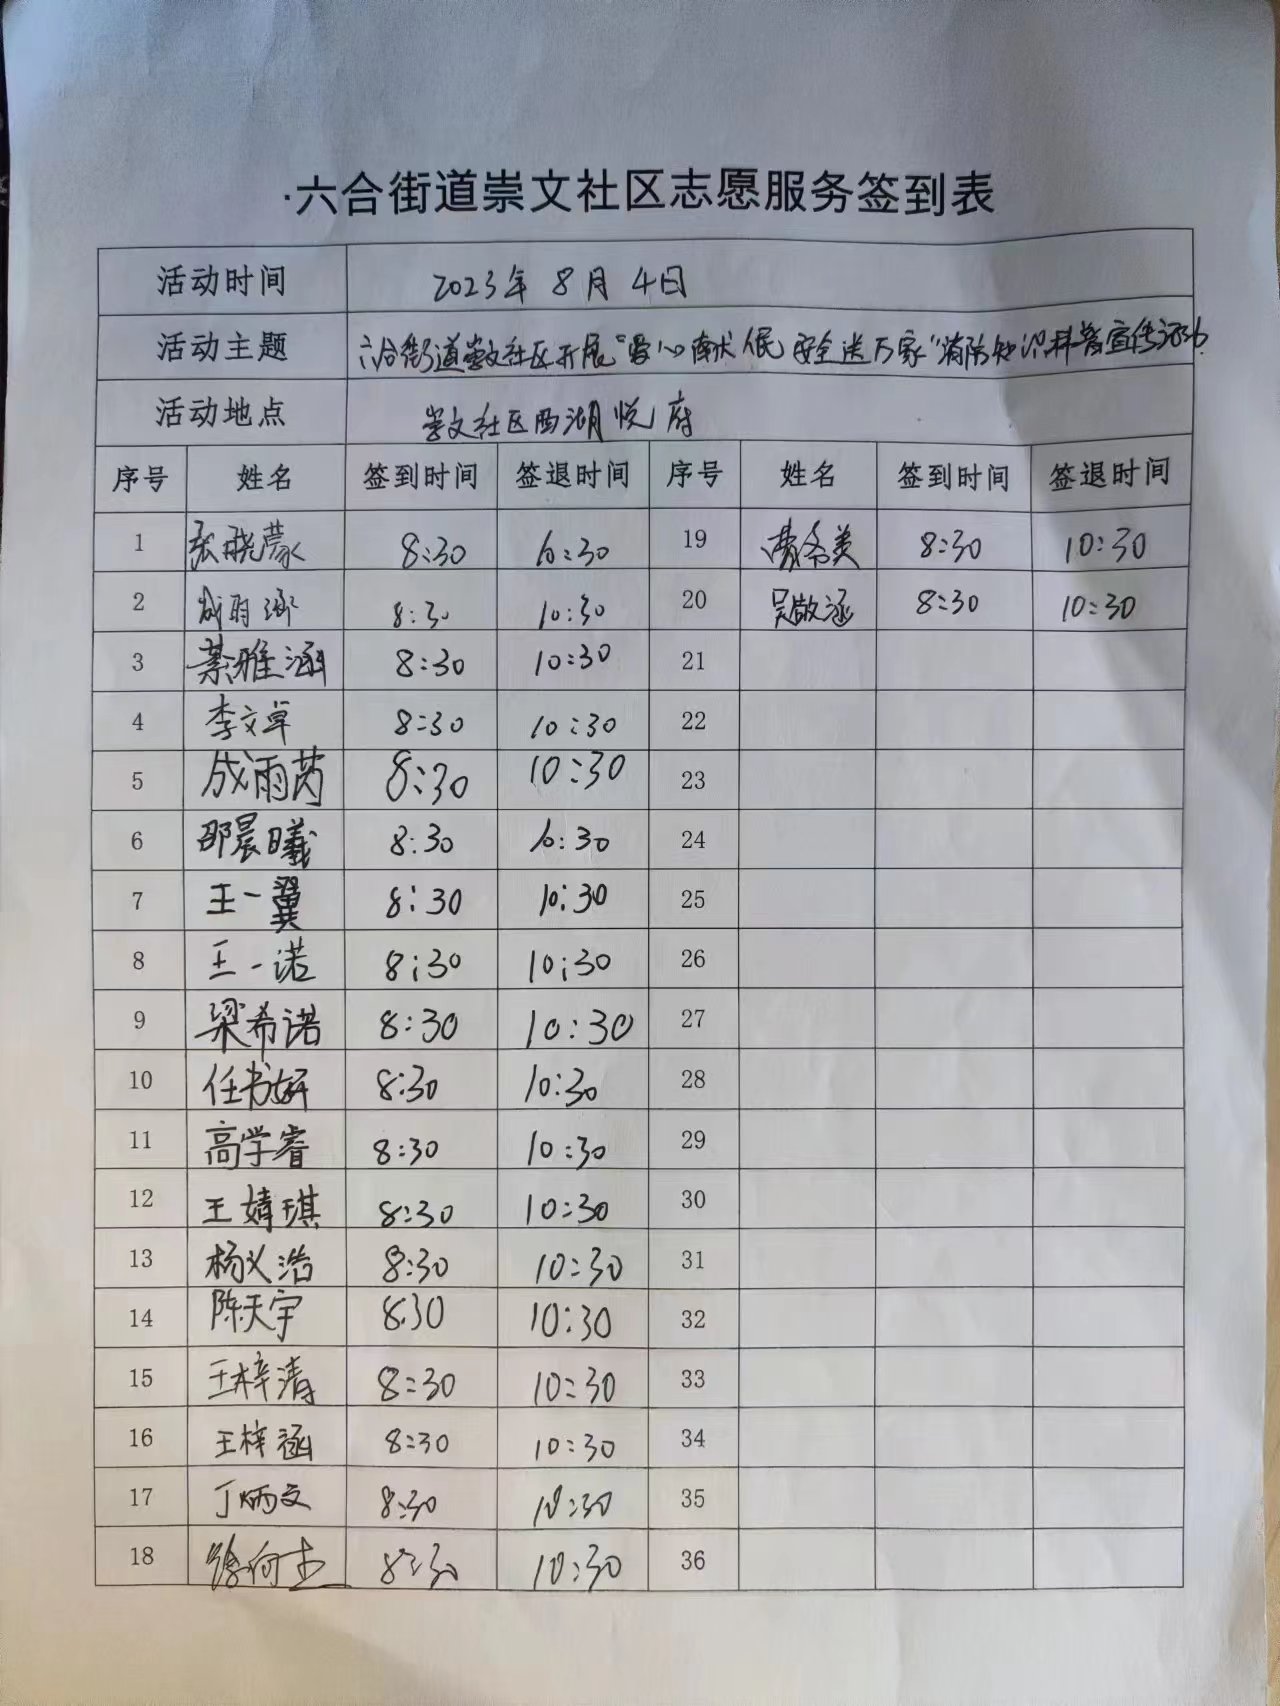 ·六合街道崇文社区志愿服务签到表
活动时间 2023年 8月 4日
活动主题 六合街道崇文社区开展“爱心献人民 安全送万家”消防知识科普宣传活动
活动地点 崇文社区西湖悦府
序号 姓名 签到时间 签退时间 序号 姓名 签到时间 签退时间
1 张晓蒙 8:30 10:30 19 8:30 10:30
2 成羽涿 8:30 10:30 20 吴敬涵 8:30 10:30
3 蔡雅涵 8:30 10:30 21
4 李文卓 8:30 10:30 22
5 成雨芮 8:30 10:30 23
6 邵晨曦 8:30 10:30 24
7 王一翼 8:30 10:30 25
8 王一诺 8:30 10:30 26
9 梁希诺 8:30 10:30 27
10 任书妍 8:30 10:30 28
11 高学睿 8:30 10:30 29
12 王婧琪 8:30 10:30 30
13 杨义浩 8:30 10:30 31
14 陈天宇 8:30 10:30 32
15 王梓清 8:30 10:30 33
16 王梓涵 8:30 10:30 34
17 丁炳文 8:30 10:30 35
18 8:30 10:30 36